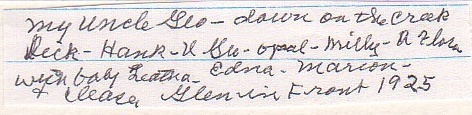 my Uncle Geo - down on the Creek
Dick - Hank - U Geo - opal - Milly - A Flora
with baby - Edna - Marion -
+ Glen in Front 1925